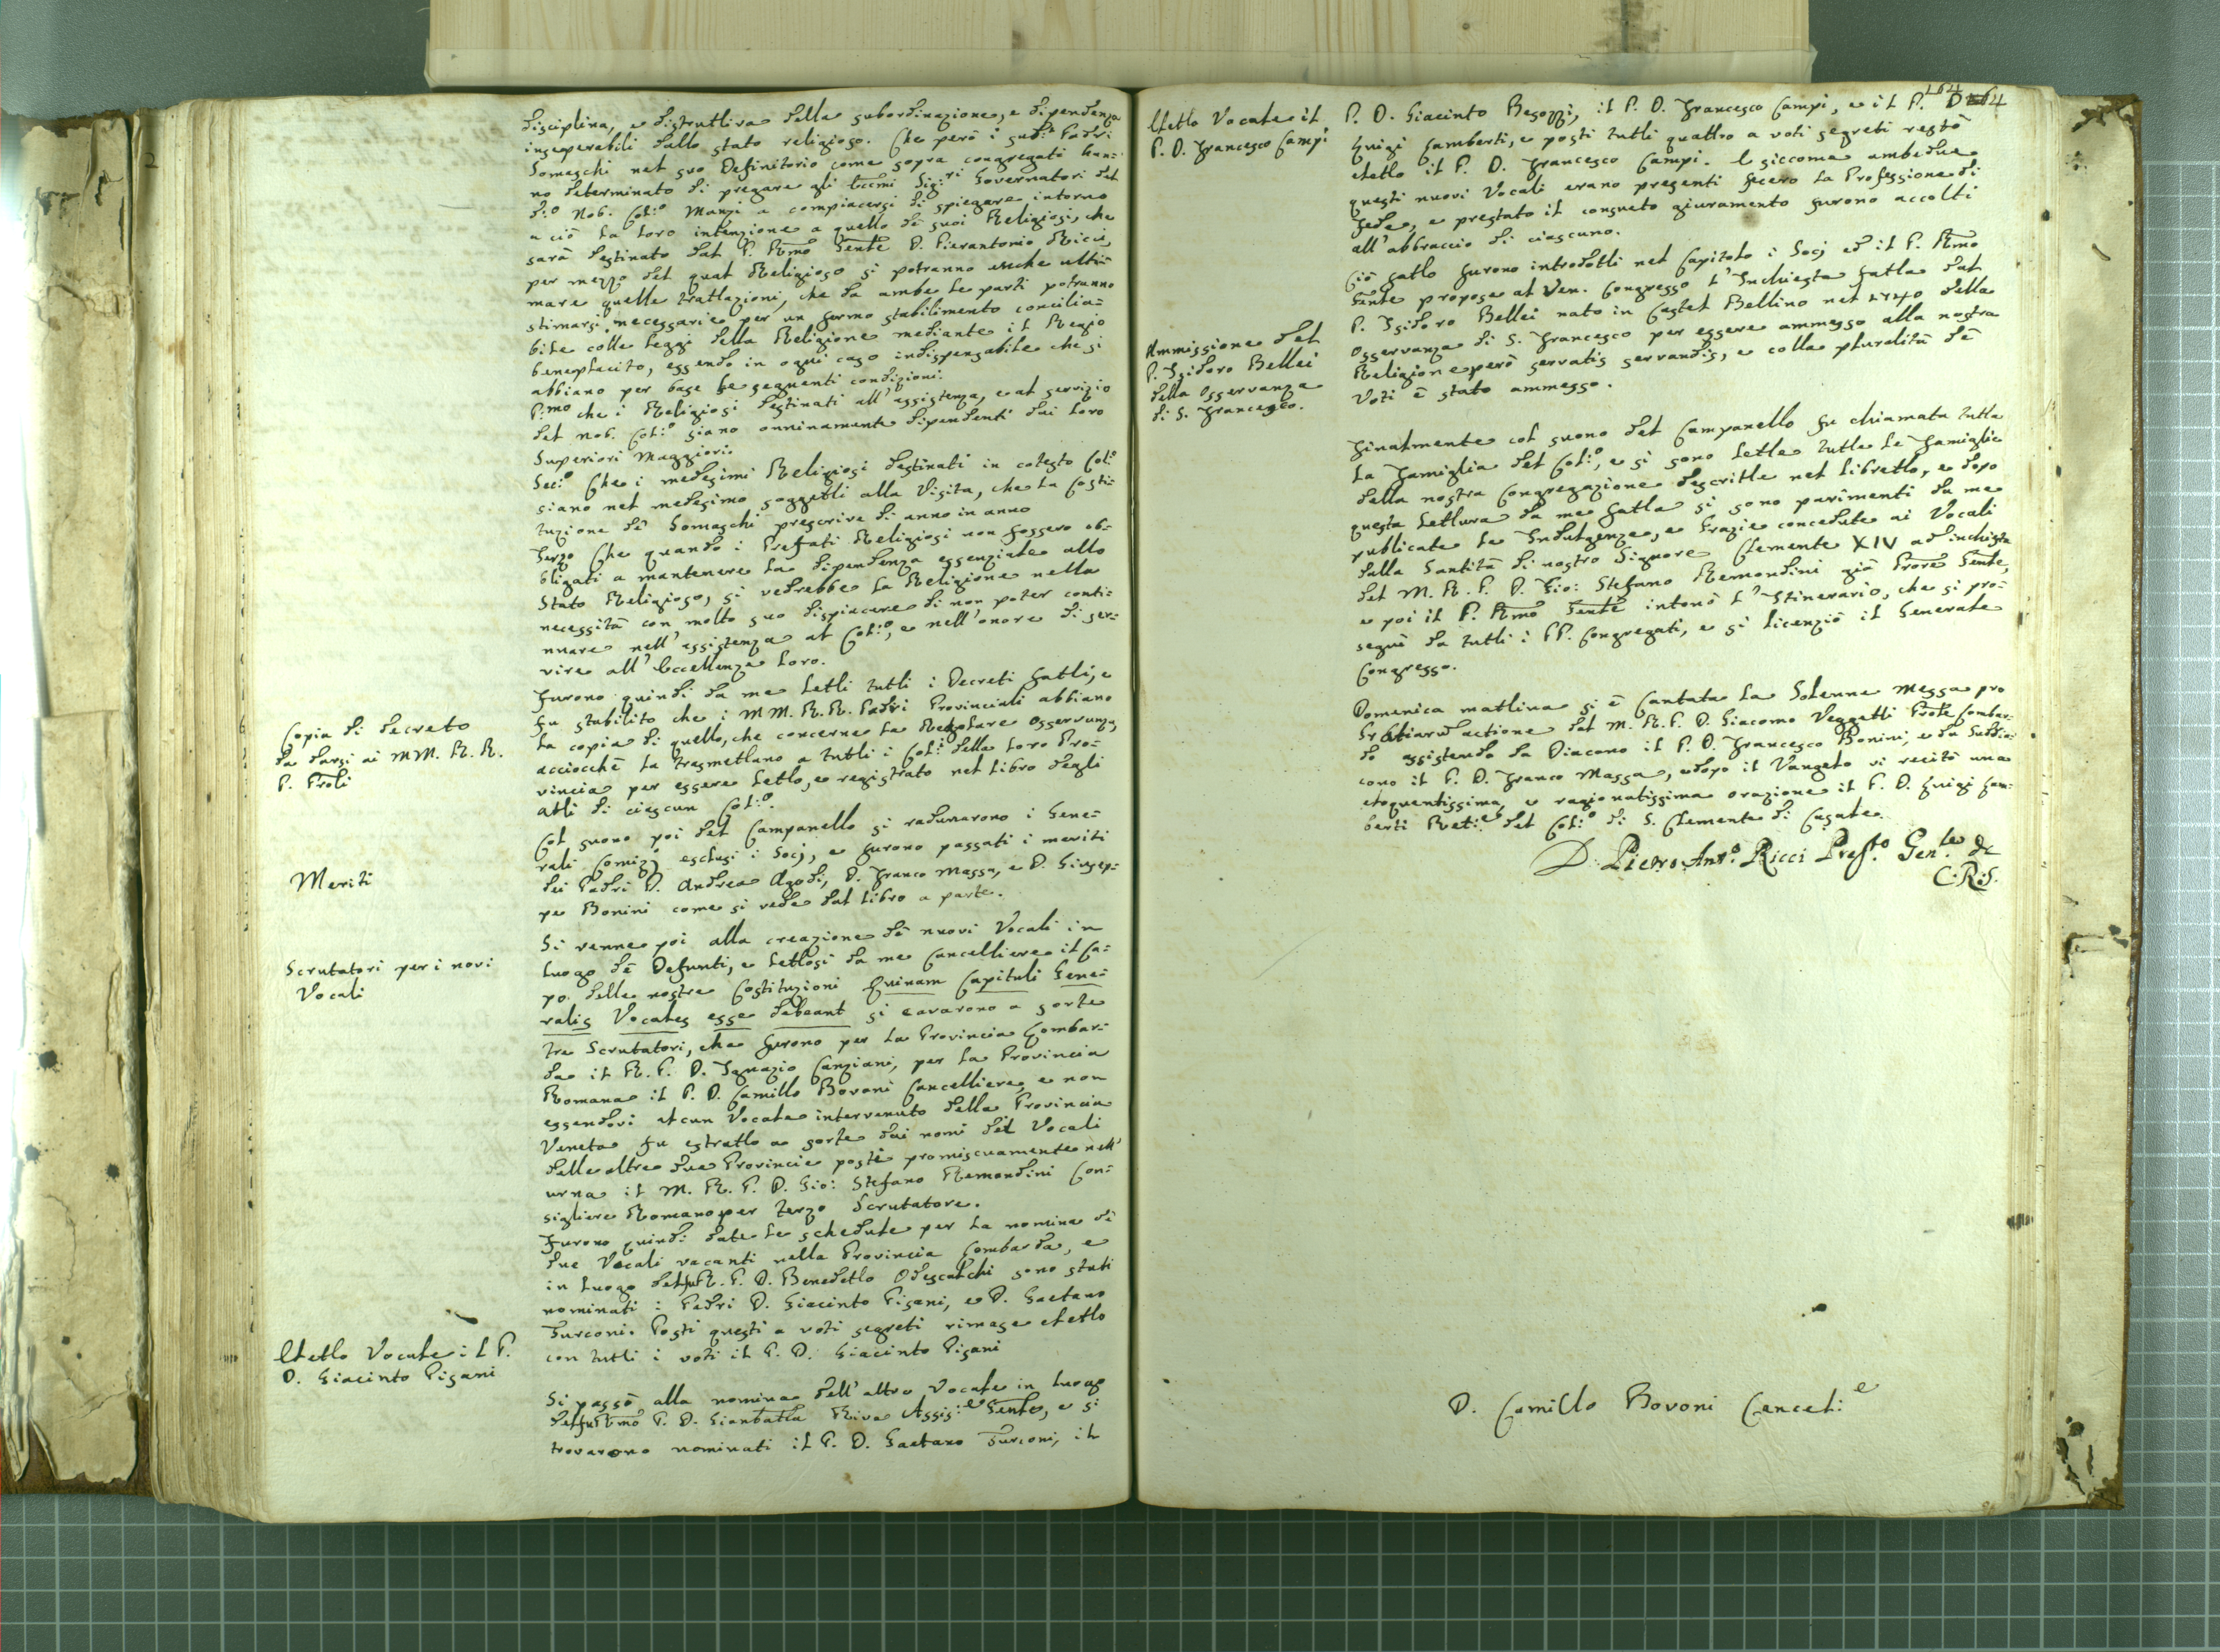 disciplina, e distruttiva della subordinazione, e dipendenza
inseperabili dallo stato religioso. Che però i sud.i Padri
Somaschi nel suo Definitorio come sopra congregati han=
no determinato di pregare gli Eccmi Sig:ri Governatori del
d:o Nob. Col:o Manzi a compiacersi di spiegare intorno
a ciò la loro intenzione a quello dè suoi Religiosi, che
sarà destinato dal P. Rmo Gente D. Pierantonio Ricci,
per mezzo del qual Religioso si potranno anche ulti=
mare quelle trattazioni, che da ambe le parti potranno
stimarsi necessarie per un fermo stabilimento concilia=
bile colle leggi della Religione mediante il Regio
beneplacito, essendo in ogni caso indispensabile che si
abbiano per base le seguenti condizioni.
P:mo che i Religiosi destinati all'assistenza, e al servizio
del nob. Col:o siano onninamente dipendenti dai loro
Superiori Maggiori.
Sec:o Che i medesimi Religiosi destinati in cotesto Col:o
siano nel medesimo soggetti alla Visita, che la Costi=
tuzione dè Somaschi prescrive di anno in anno
Terzo Che quando i Prefati Religiosi non fossero ob=
bligati a mantenere la dipendenza essenziale allo
Stato Religioso, si vedrebbe la Religione nella
necessità con molto suo dispiacere di non poter conti=
nuare nell'assistenza al Col:o, e nell'onore di ser=
vire all'Eccellenze loro.
Copia di decreto
da darsi ai MM. R. R.
P. Proli
Furono quindi da me letti tutti i Decreti fatti, e
fu stabilito che i MM. R.R. Padri Provinciali abbiano
la copia di quello, che concerne la Regolare Osservanza,
acciocchè la trasmettano a tutti i Col:i della loro Pro=
vincia per essere letto, e registrato nel libro degli
atti di ciascun Col:o.
Meriti
Col suono poi del Campanello si radunarono i Gene=
rali Comizj esclusi i Socj, e furono passati i meriti
dei Padri D. Andrea Agodi, D. Franco Massa, e D. Giusep=
pe Bonini come si vede dal libro a parte.
Scrutatori per i novi
Vocali
Si venne poi alla creazione dè nuovi Vocali in
luogo dè Defunti, e lettosi da me Cancelliere il Ca=
po delle nostre Costituzioni Quinam Capituli Gene=
ralis Vocales esse debeant si cavarono a sorte
tre Scrutatori, che furono per la Provincia Lombar=
da il R. P. D. Ignazio Canziani, per la Provincia
Romana il P. D. Camillo Bovoni Cancelliere, e non
essendovi alcun Vocale intervenuto della Provincia
Veneta fu estratto a sorte dai nomi dei Vocali
delle altre due Provincie posti promiscuamente nell'
urna il M. R. P. D. Gio: Stefano Remondini Con=
sigliere Romano per terzo Scrutatore.
Furono quindi date le schedule per la nomina di
due Vocali vacanti nella Provincia Lombarda, e
in luogo del fu R. P. D. Benedetto Odescalchi sono stati
nominati i Padri D. Giacinto Pisani, e D. Gaetano
Turconi. Posti questi a voti segreti rimase eletto
con tutti i voti il P. D. Giacinto Pisani
Eletto Vocale il P.
D. Giacinto Pisani
Si passò alla nomina dell'altro Vocale in luogo
del fu Rmo P. D. Gianbatta Riva Assis:e Gente, e si
trovarono nominati il P. D. Gaetano Turconi, il
164
164
Eletto Vocale il
P. D. Francesco Campi
P. D. Giacinto Besozzi, il P. D. Francesco Campi, e il P. D
Luigi Lamberti, e posti tutti quattro a voti segreti restò
eletto il P. D. Francesco Campi. E siccome ambedue
questi nuovi Vocali erano presenti fecero la Professione di
Fede, e prestato il consueto giuramento furono accolti
all'abbraccio di ciascuno.
Ammissione del
P. Isidoro Bellei
della Osservanza
di S. Francesco.
Ciò fatto furono introdotti nel Capitolo i Socj ed il P. Rmo
Gente propose al Ven. Congresso l'Inchiesta fatta dal
P. Isidoro Bellei nato in Castel Bellino nel 1740 della
Osservanza di S. Francesco per essere ammesso alla nostra
Religione però servatis servandis, e colla pluralità dè
Voti è stato ammesso.
Finalmente col suono del Campanello fu chiamata tutta
la Famiglia del Col:o, e si sono lette tutte le Famiglie
della nostra Congregazione descritte nel libretto, e dopo
questa lettura da me fatta si sono parimenti da me
publicate le Indulgenze, e Grazie concedute ai Vocali
dalla Santità di nostro Signore Clemente XIV ad inchiesta
del M. R. P. D. Gio: Stefano Remondini già Prore Gente,
e poi il P. Rmo Gente intonò l'Itinerario, che si pro=
seguì da tutti i PP. Congregati, e si licenziò il Generale
Congresso.
Domenica mattina si è Cantata la Solenne Messa pro
Gratiarum actione dal M. R. P. D. Giacomo Vegetti Prole Lombar=
do assistendo da Diacono il P. D. Francesco Bonini, e da Suddia=
cono il P. D. Franco Massa, e dopo il Vangelo vi recitò una
eloquentissima, e ragionatissima orazione il P. D. Luigi Lam=
berti Ret:e del Col:o di S. Clemente di Casale.
D. Pietro Ant.o Ricci Prep.to Gen.le de
C.R.S.
D. Camillo Bovoni Cancel:e